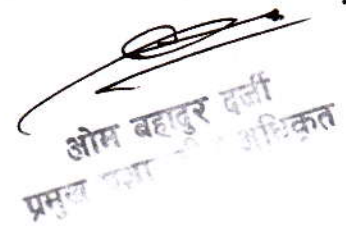 ओम बहादुर दर्जी
प्रमुख अधिकृत